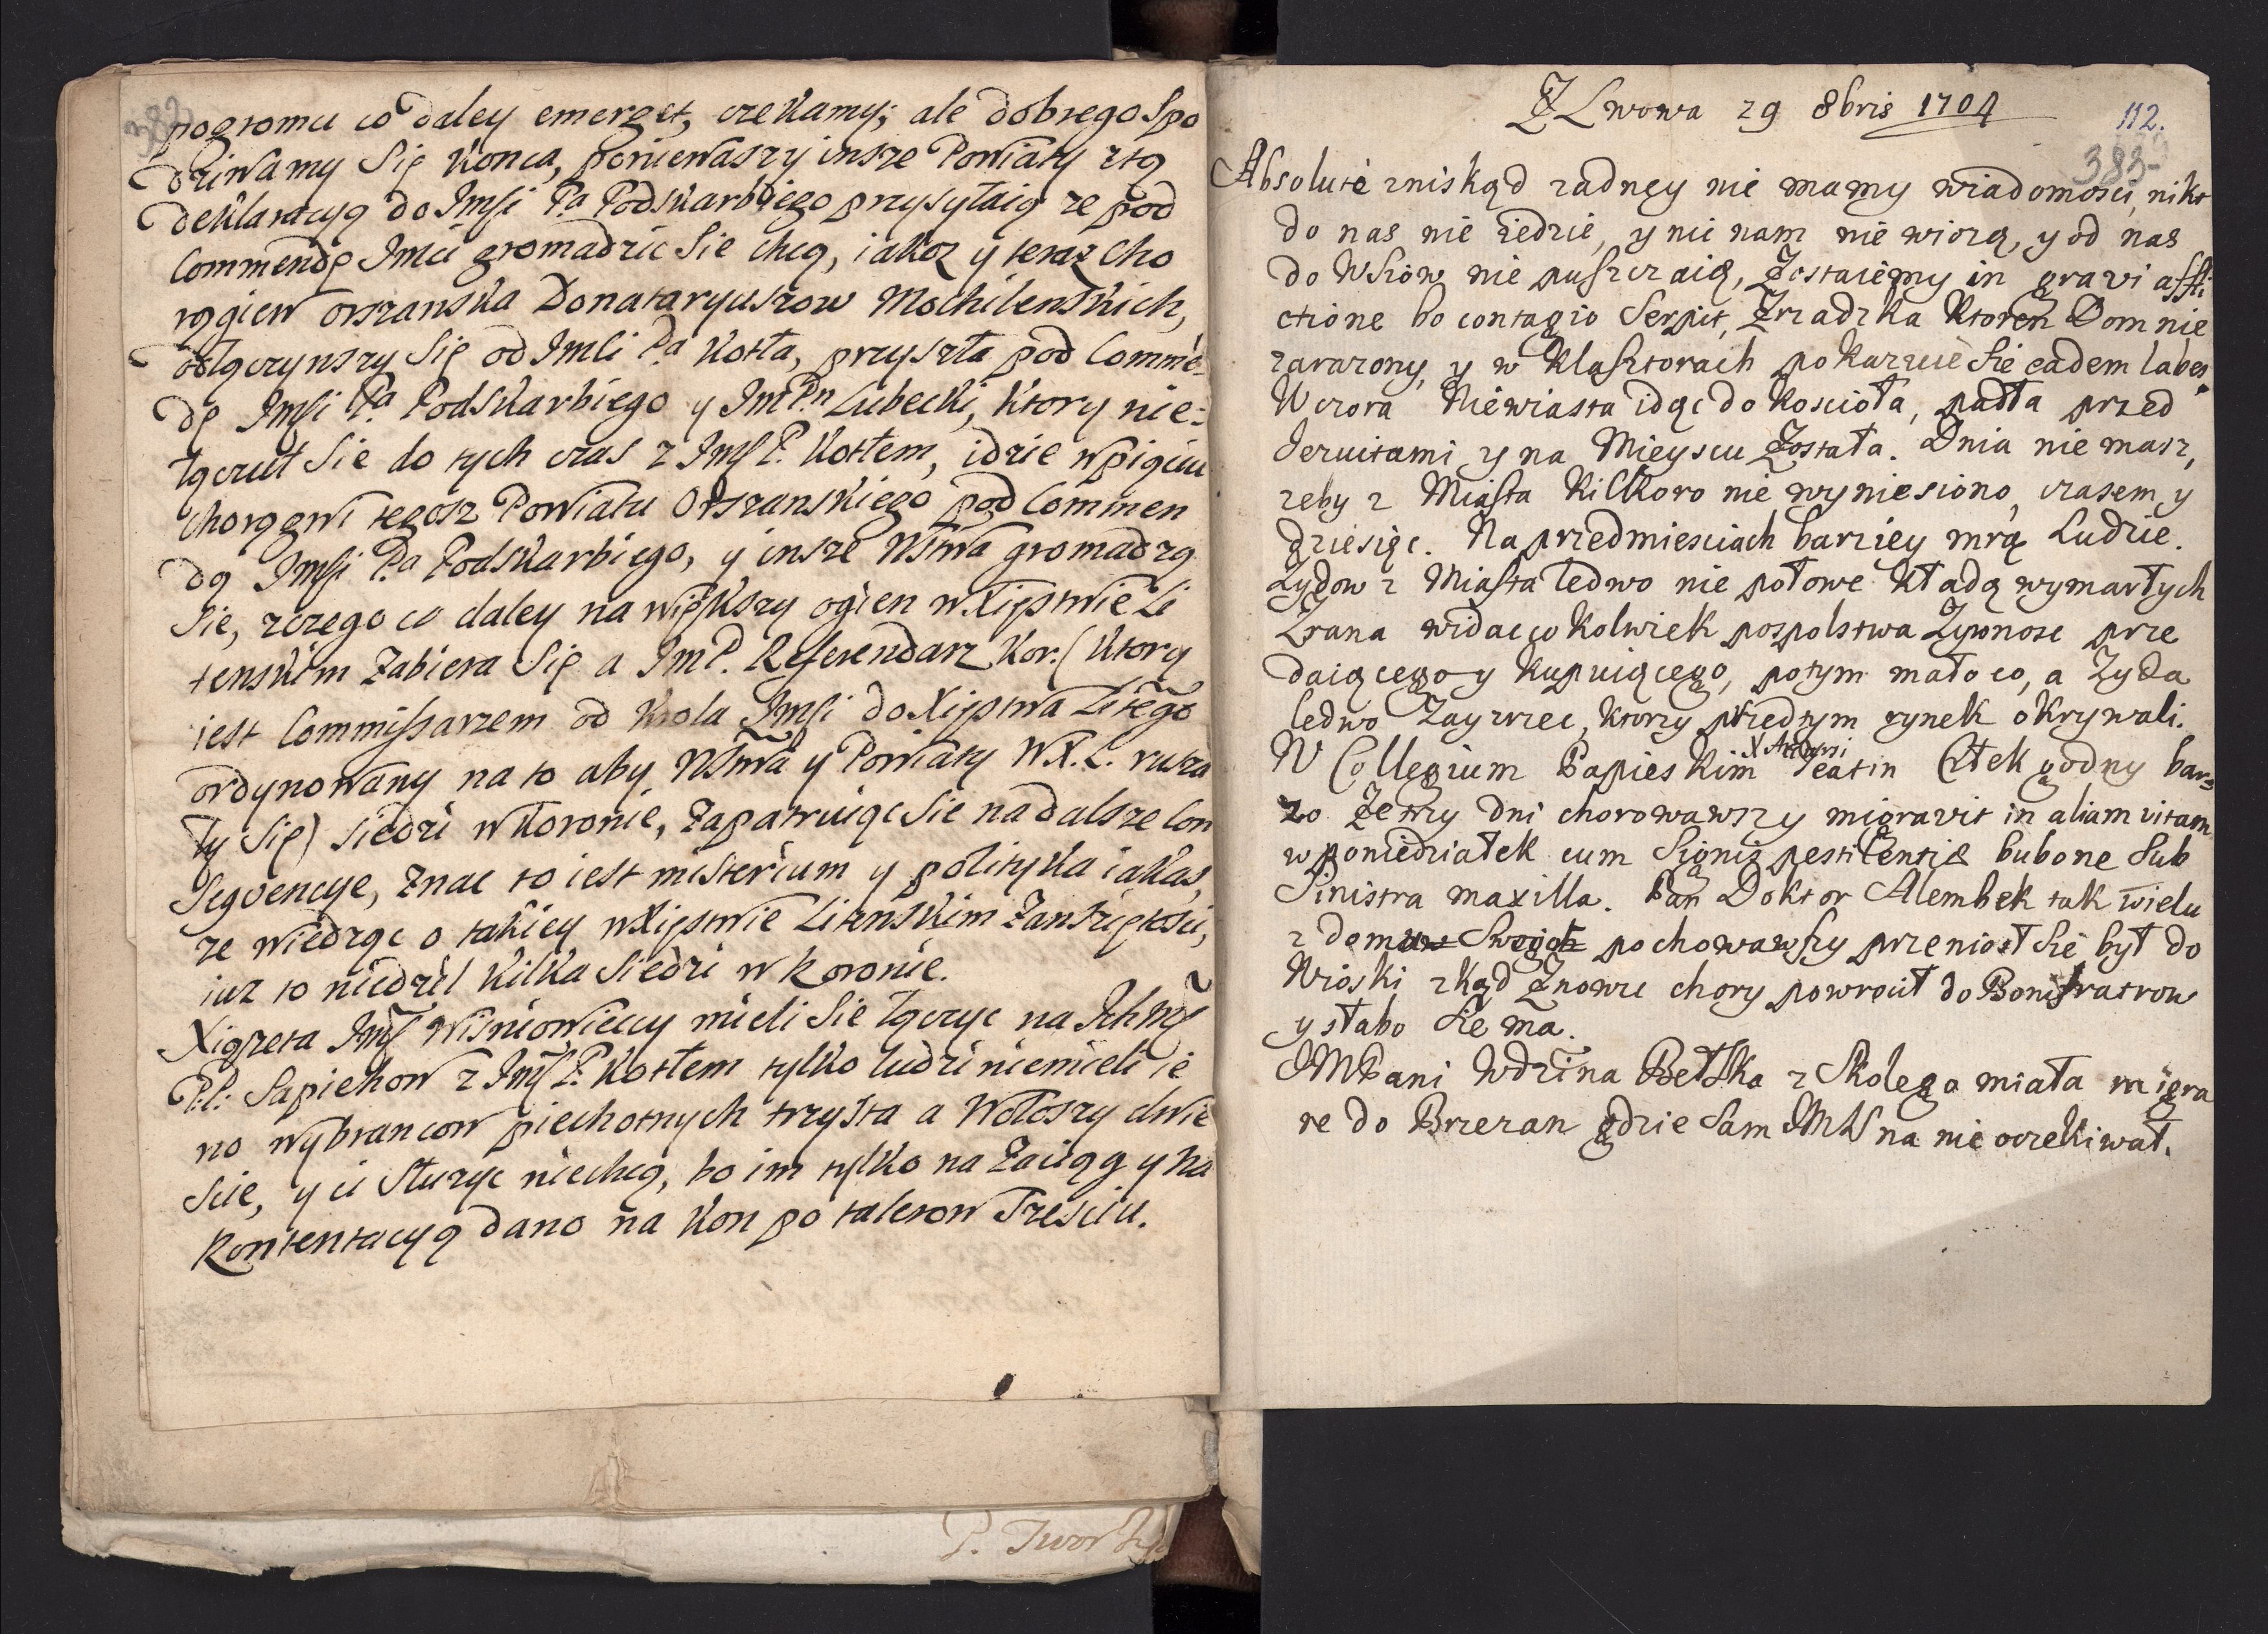 382
pogromu co daley emerget, czekamy; ale dobrego Spo
dziwamy Się Konca, poniewaszy insze Powiaty ztą
deklaracyą do Imści Pa Podskarbiego przysyłaią ze pod
Commendę Imci gromadzic Sie chcą, iakoz y teraz Cho
rągiew orszanska Donataryuszow Mochilenskich,
odłączywszy Się od Imci Pa Kotła, przyszła pod Commen-
dę Imści Pa Podskarbiego y Im Pn Lubecki, ktory nie-
łączył Sie do tych czas z Imś P. Kotłem, idzie wpiąciu
chorągwi tegosz Powiatu Orszanskiego pod Commen
dą Imści Pa Podskarbiego, y insze Wstwa gromadzą
Sie, zczego co daley na większy ogien wXięstwie Li
tenskim Zabiera Się a Im P. Referendarz Kor. (ktory
iest Commissarzem od Krola Imści do Xięstwa Litego
ordynowany na to aby Wstwa y Powiaty W.X.L. rusza
ły Się) siedzi wKoronie, Zapatruiąc Sie na dalsze Con
Seqvencye, znac to iest misterium y polityka iakas,
ze wiedząc o takiey wXięstwie Litenskim Zawziętości,
iuz to niedziel kilka Siedzi w Koronie.
Xiązęta Imś Wisniowieccy mieli Sie łączyc na Ichmś
P.P. Sapiehow z Imś P. Kotłem tylko ludzi niemieli ie
no wybrancow piechotnych trzysta a Wołoszy dwie
scie, y ci słuzyc niechcą, bo im tylko na Zaciąg y na
Kontentacyą dano na Kon po talerow Trzesciu.
P. Twor
Z Lwowa 29 8bris 1704
112.
383
Absolutè zniskąd zadney nie mamy wiadomosci, nikt
do nas nie iedzie, y nic nam nie wiozą, y od nas
do Wsiow nie puszczaią, Zostaiemy in gravi affli
ctione bo contagio Serpit, Zrzadzka ktoren Dom nie
zarazony, y w Klasztorach pokazuie Sie eadem labes.
Wczora Niewiasta idąc do koscioła, padła przed
Jezuitami y na Mieyscu Została. Dnia nie masz,
zeby z Miasta Kilkoro nie wyniesiono, czasem y
dziesięc. Na przedmiesciach barziey mrą Ludzie.
Zydow z Miasta ledwo nie połowe kładą wymarłych
Zrana widac co kolwiek pospolstwa Zywnosc prze
daiącego y kupuiącego, potym mało co, a Zyda
ledwo Zayzrzec, ktorzy przedtym rynek okrywali.
W Collegium Papieskim Teatin Człek godny bar-
zo Ze trzy dni chorowawszy migravit in aliam vitam
w poniedziałek cum Signis pestilentiæ bubone Sub
Sinistra maxilla. Pan Doktor Alembek tak wielu
z domu Swoich pochowawszy przeniosł Sie był do
Wioski zkąd Znowu chory powrocił do Bonifratrow
y słabo Sie ma.
JMPani Wdzina Bełska z Skolego miała migra
re do Brzezan gdzie Sam JMW na nie oczekiwał.